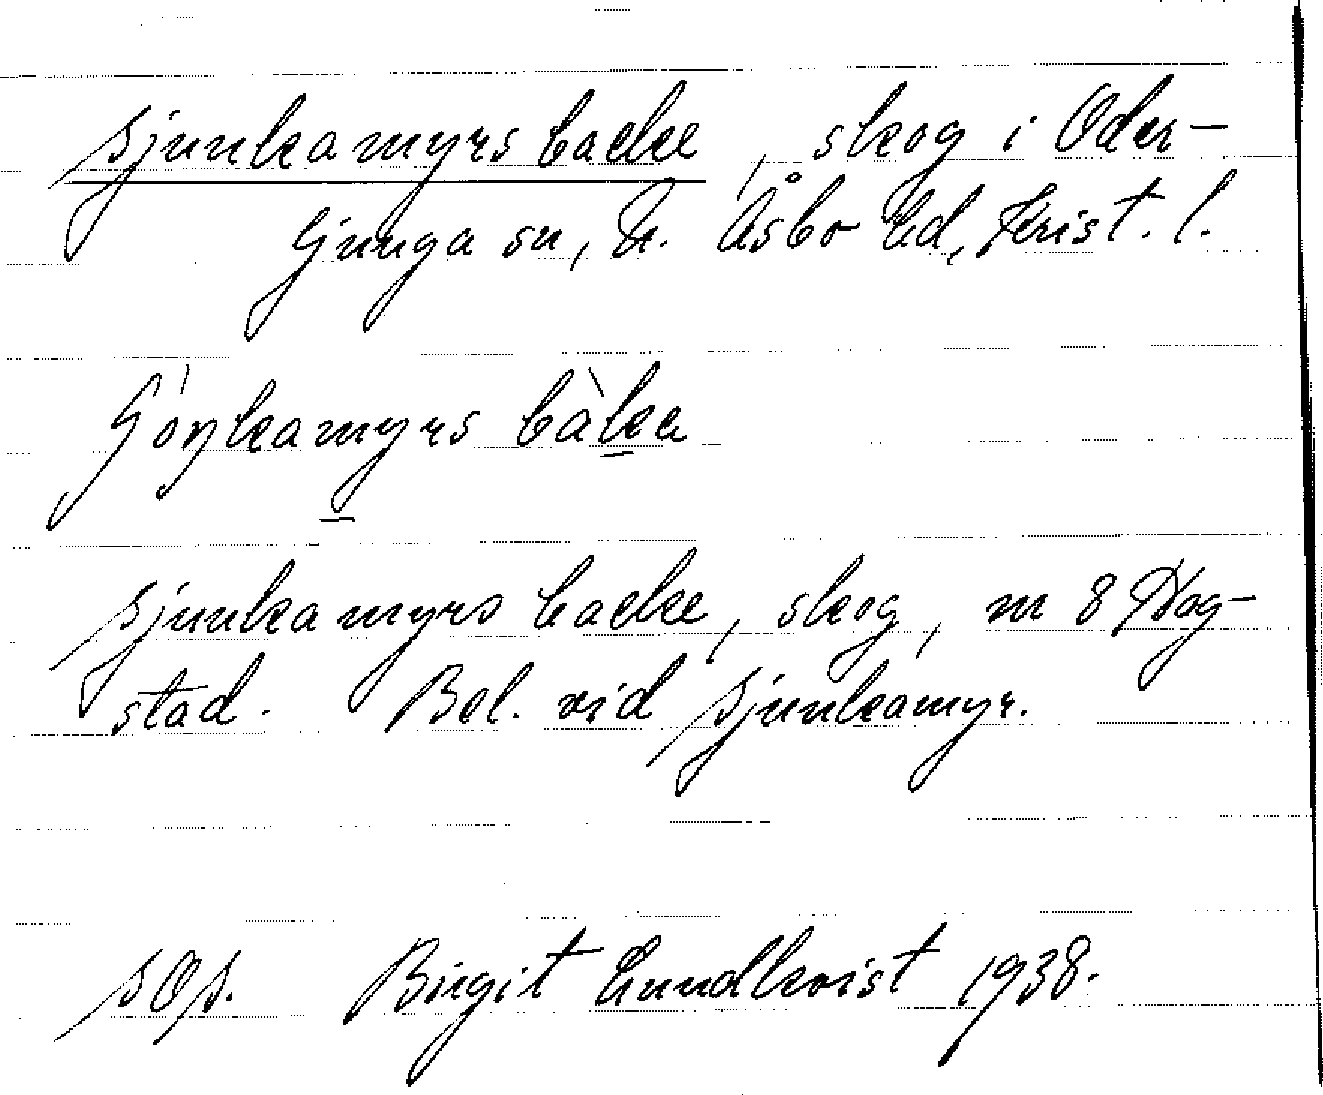 Sjunkamyrs backe, skog i Oder-
ljunga sn, N. Åsbo hd, Krist. l.
sjö́ŋkamyrs bàka
Sjunkamyrs backe, skog, nr 8 Dog-
stad. Bel. vid Sjunkamyr.
SOS. Birgit Lundkvist 1938.